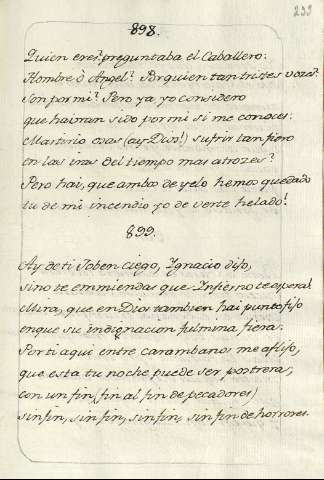 233
898.
Quien eres? preguntaba el Caballero:
Hombre ò Angel? Por quien tan tristes vozes?
Son por mi? Pero ya yo considero
que havran sido por mi si me conoces:
Martirio osas (ay Dios!) sufrir tan fiero
en las iras del tiempo mas atrozes?
Pero hai, que ambos de yelo hemos quedado
tu de mi incendio yo de verte helado!
899.
Ay de ti Joben ciego, Ignacio dijo,
sino te emmiendas que Infierno te espera!
Mira, que en Dios tambien hai punto fijo
en que su indignacion fulmina fiera.
Por ti aqui entre carambanos me aflijo,
que esta tu noche puede ser postrera,
con un fin (fin al fin de pecadores)
sin fin, sin fin, sin fin, sin fin de horrores.